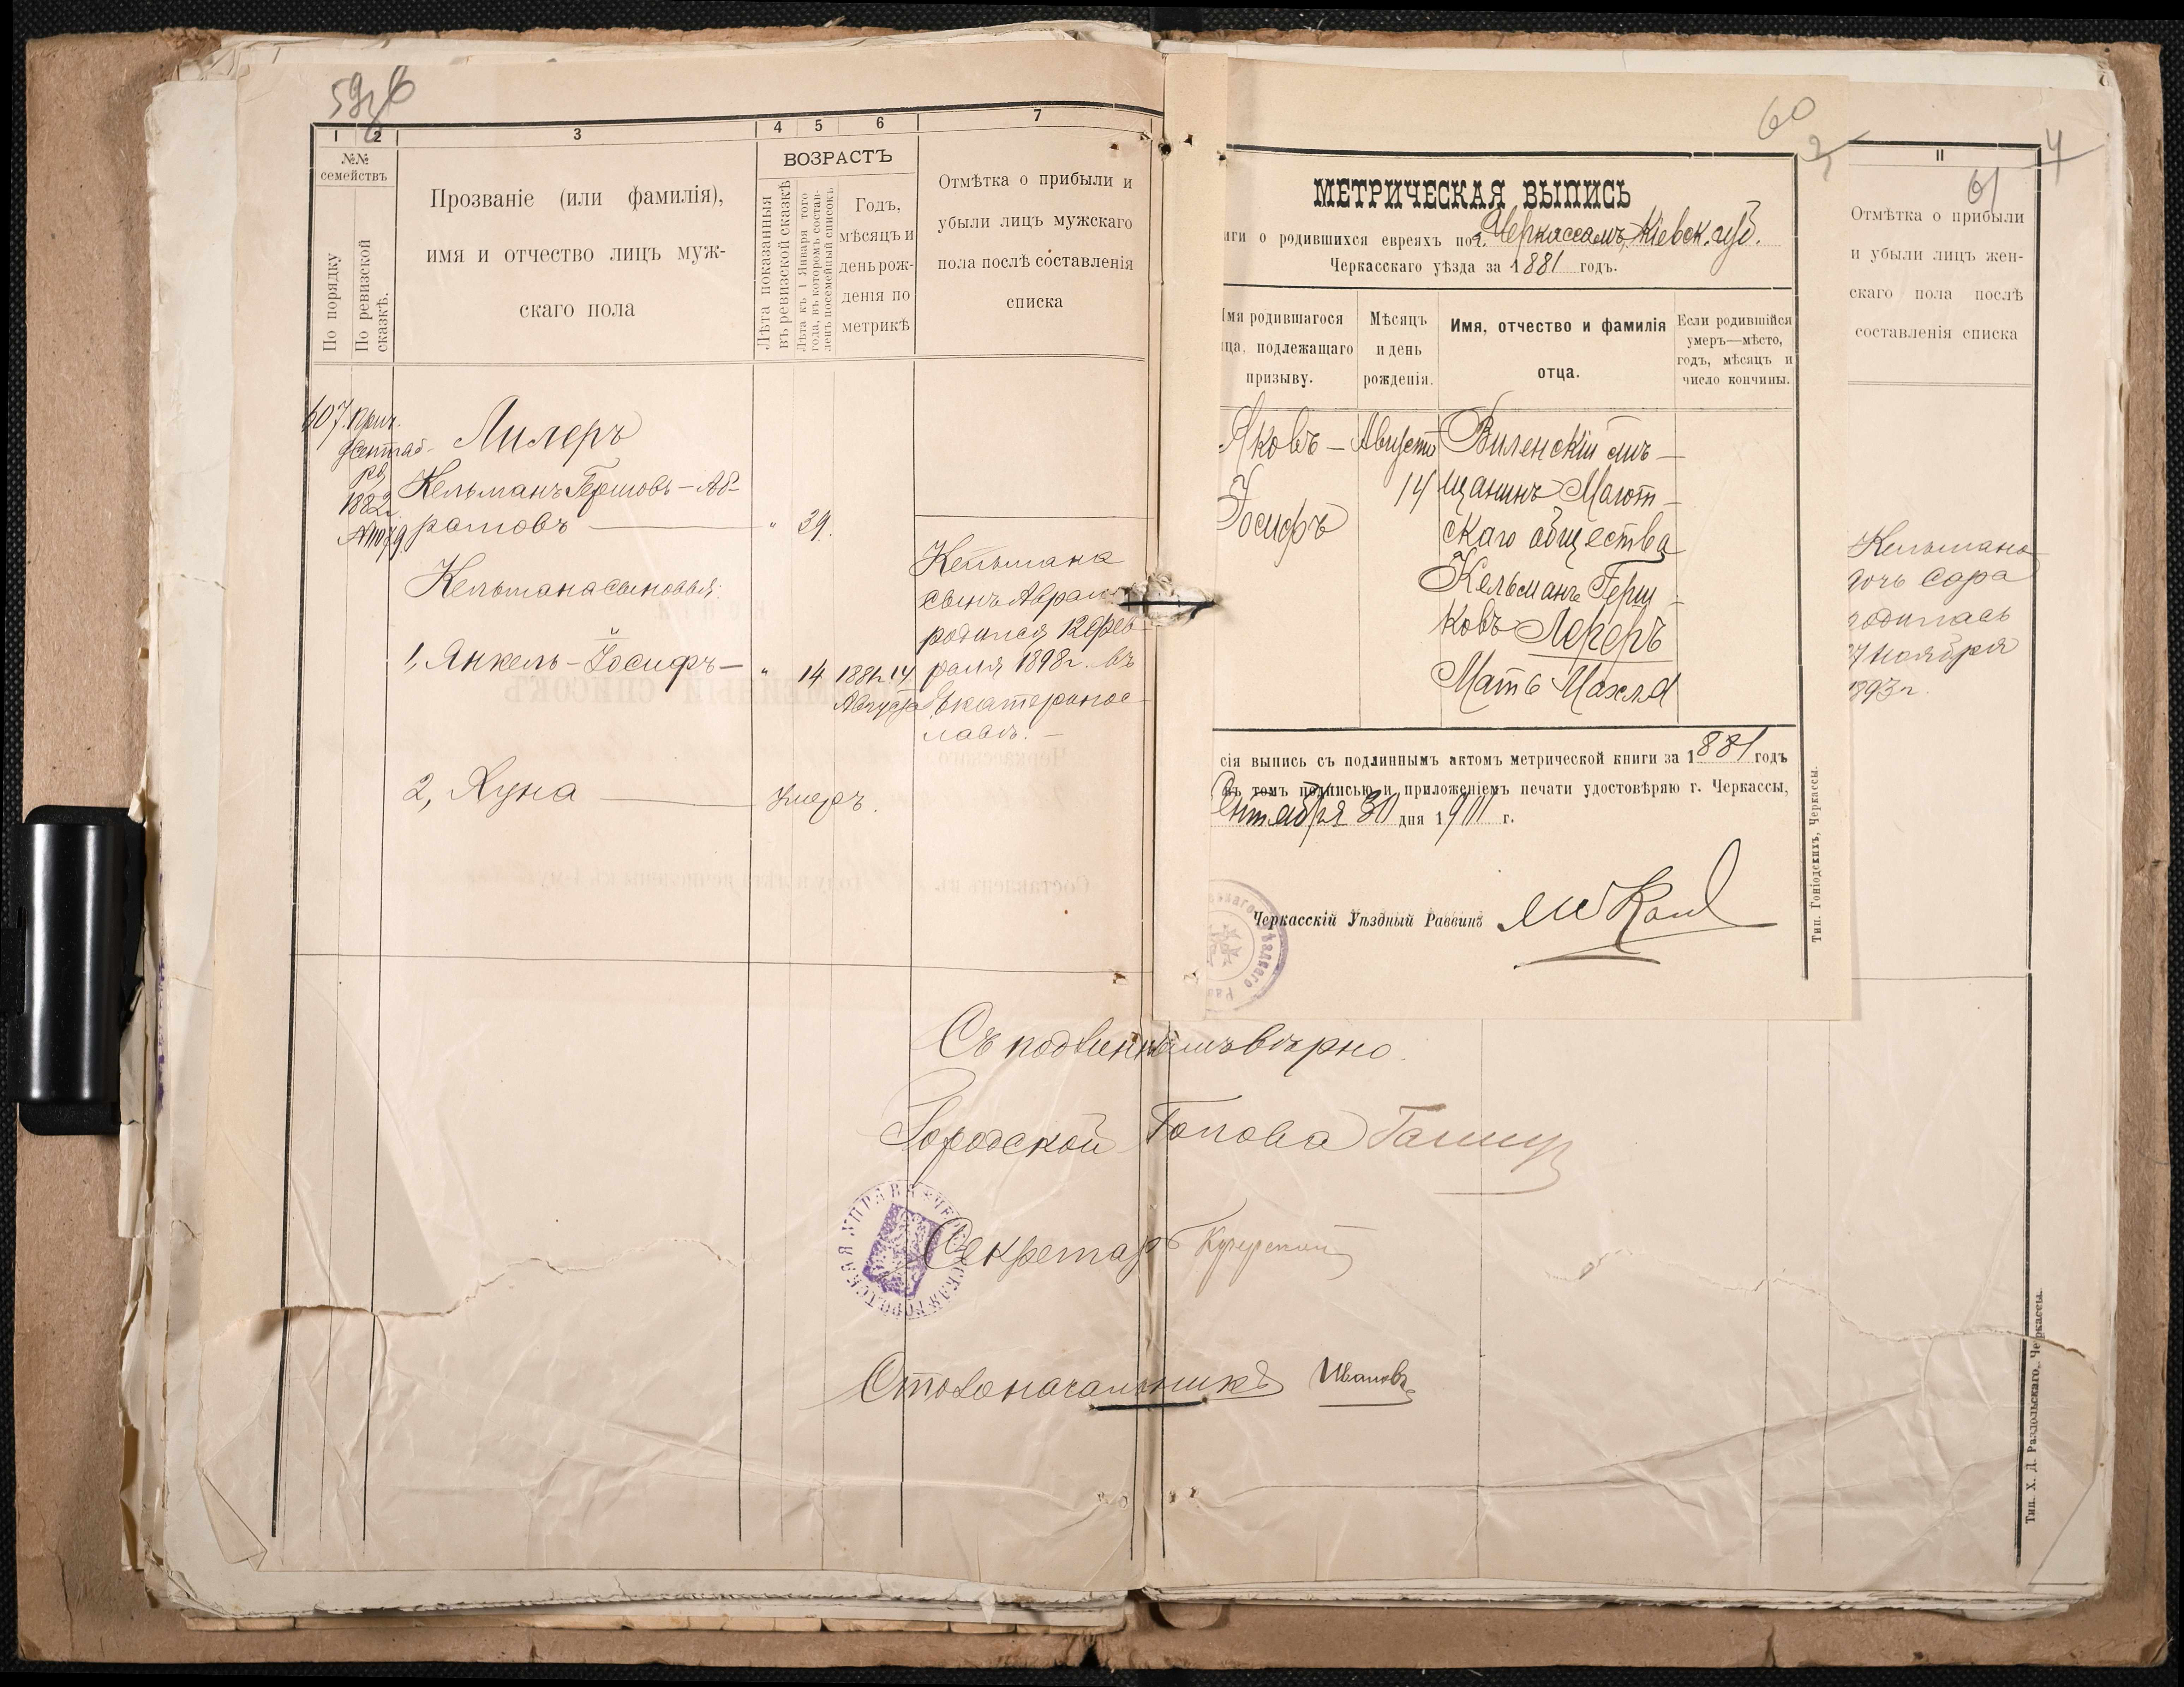 1
2
3
4
5
6
7
№№ семействъ
По порядку
По ревизской сказкѣ.
Прозваніе (или фамилія),
имя и отчество лицъ муж-
скаго пола
ВОЗРАСТЪ
Лѣта показанныя
въ ревизской сказкѣ
Лѣта къ 1 Января того
года, въ которомъ состав-
ленъ посемейный списокъ
Годъ,
мѣсяцъ и
день рож-
денія по
метрикѣ
Отмѣтка о прибыли и
убыли лицъ мужскаго
пола послѣ составленія
списка
607. Прич.
Сентяб-
ря
1882 г.
№1079
Лилеръ
Кельманъ Гершовъ-Аб-
рамовъ — " 39.
Кельмана сыновья:
1, Янкель-Іосифъ — " 14 1881 г. 14
Августа
2, Хуна — умеръ.
Кельмана
сынъ Авраам
родился 12 фев-
раля 1898 г. въ
Екатеринос-
лавѣ. —
60
2
МЕТРИЧЕСКАЯ ВЫПИСЬ
иги о родившихся евреяхъ по г. Черкассамъ, Кіевск. губ.
Черкасскаго уѣзда за 1881 годъ.
Имя родившагося
ца, подлежащаго
призыву.
Мѣсяцъ
и день
рожденія.
Имя, отчество и фамилія
отца.
Если родившійся
умеръ—мѣсто,
годъ, мѣсяцъ и
число кончины.
Яковъ —
Іосифъ
Августъ
14
Виленскій мѣ-
щанинъ
скаго общества
Кельманъ Герш-
ковъ Лерерь
Мать Махля
сія выпись съ подлиннымъ актомъ метрической книги за 1881 годъ
въ томъ подписью и приложеніемъ печати удостовѣряю г. Черкассы,
Сентября 30 дня 1901 г.
Черкасскій Уѣздный Раввинъ
Тип. Гоніодскихъ, Черкассы.
11
4
61
Отмѣтка о прибыли
и убыли лицъ жен-
скаго пола послѣ
составленія списка
Кельмана
дочь Сара
родилась
27 Ноября
1893 г.
Съ подлиннымъ вѣрно.
Городской Голова
Секретарь
Столоначальникъ Ивановъ
Тип. Х. Д. Раздольскаго. Черкассы.